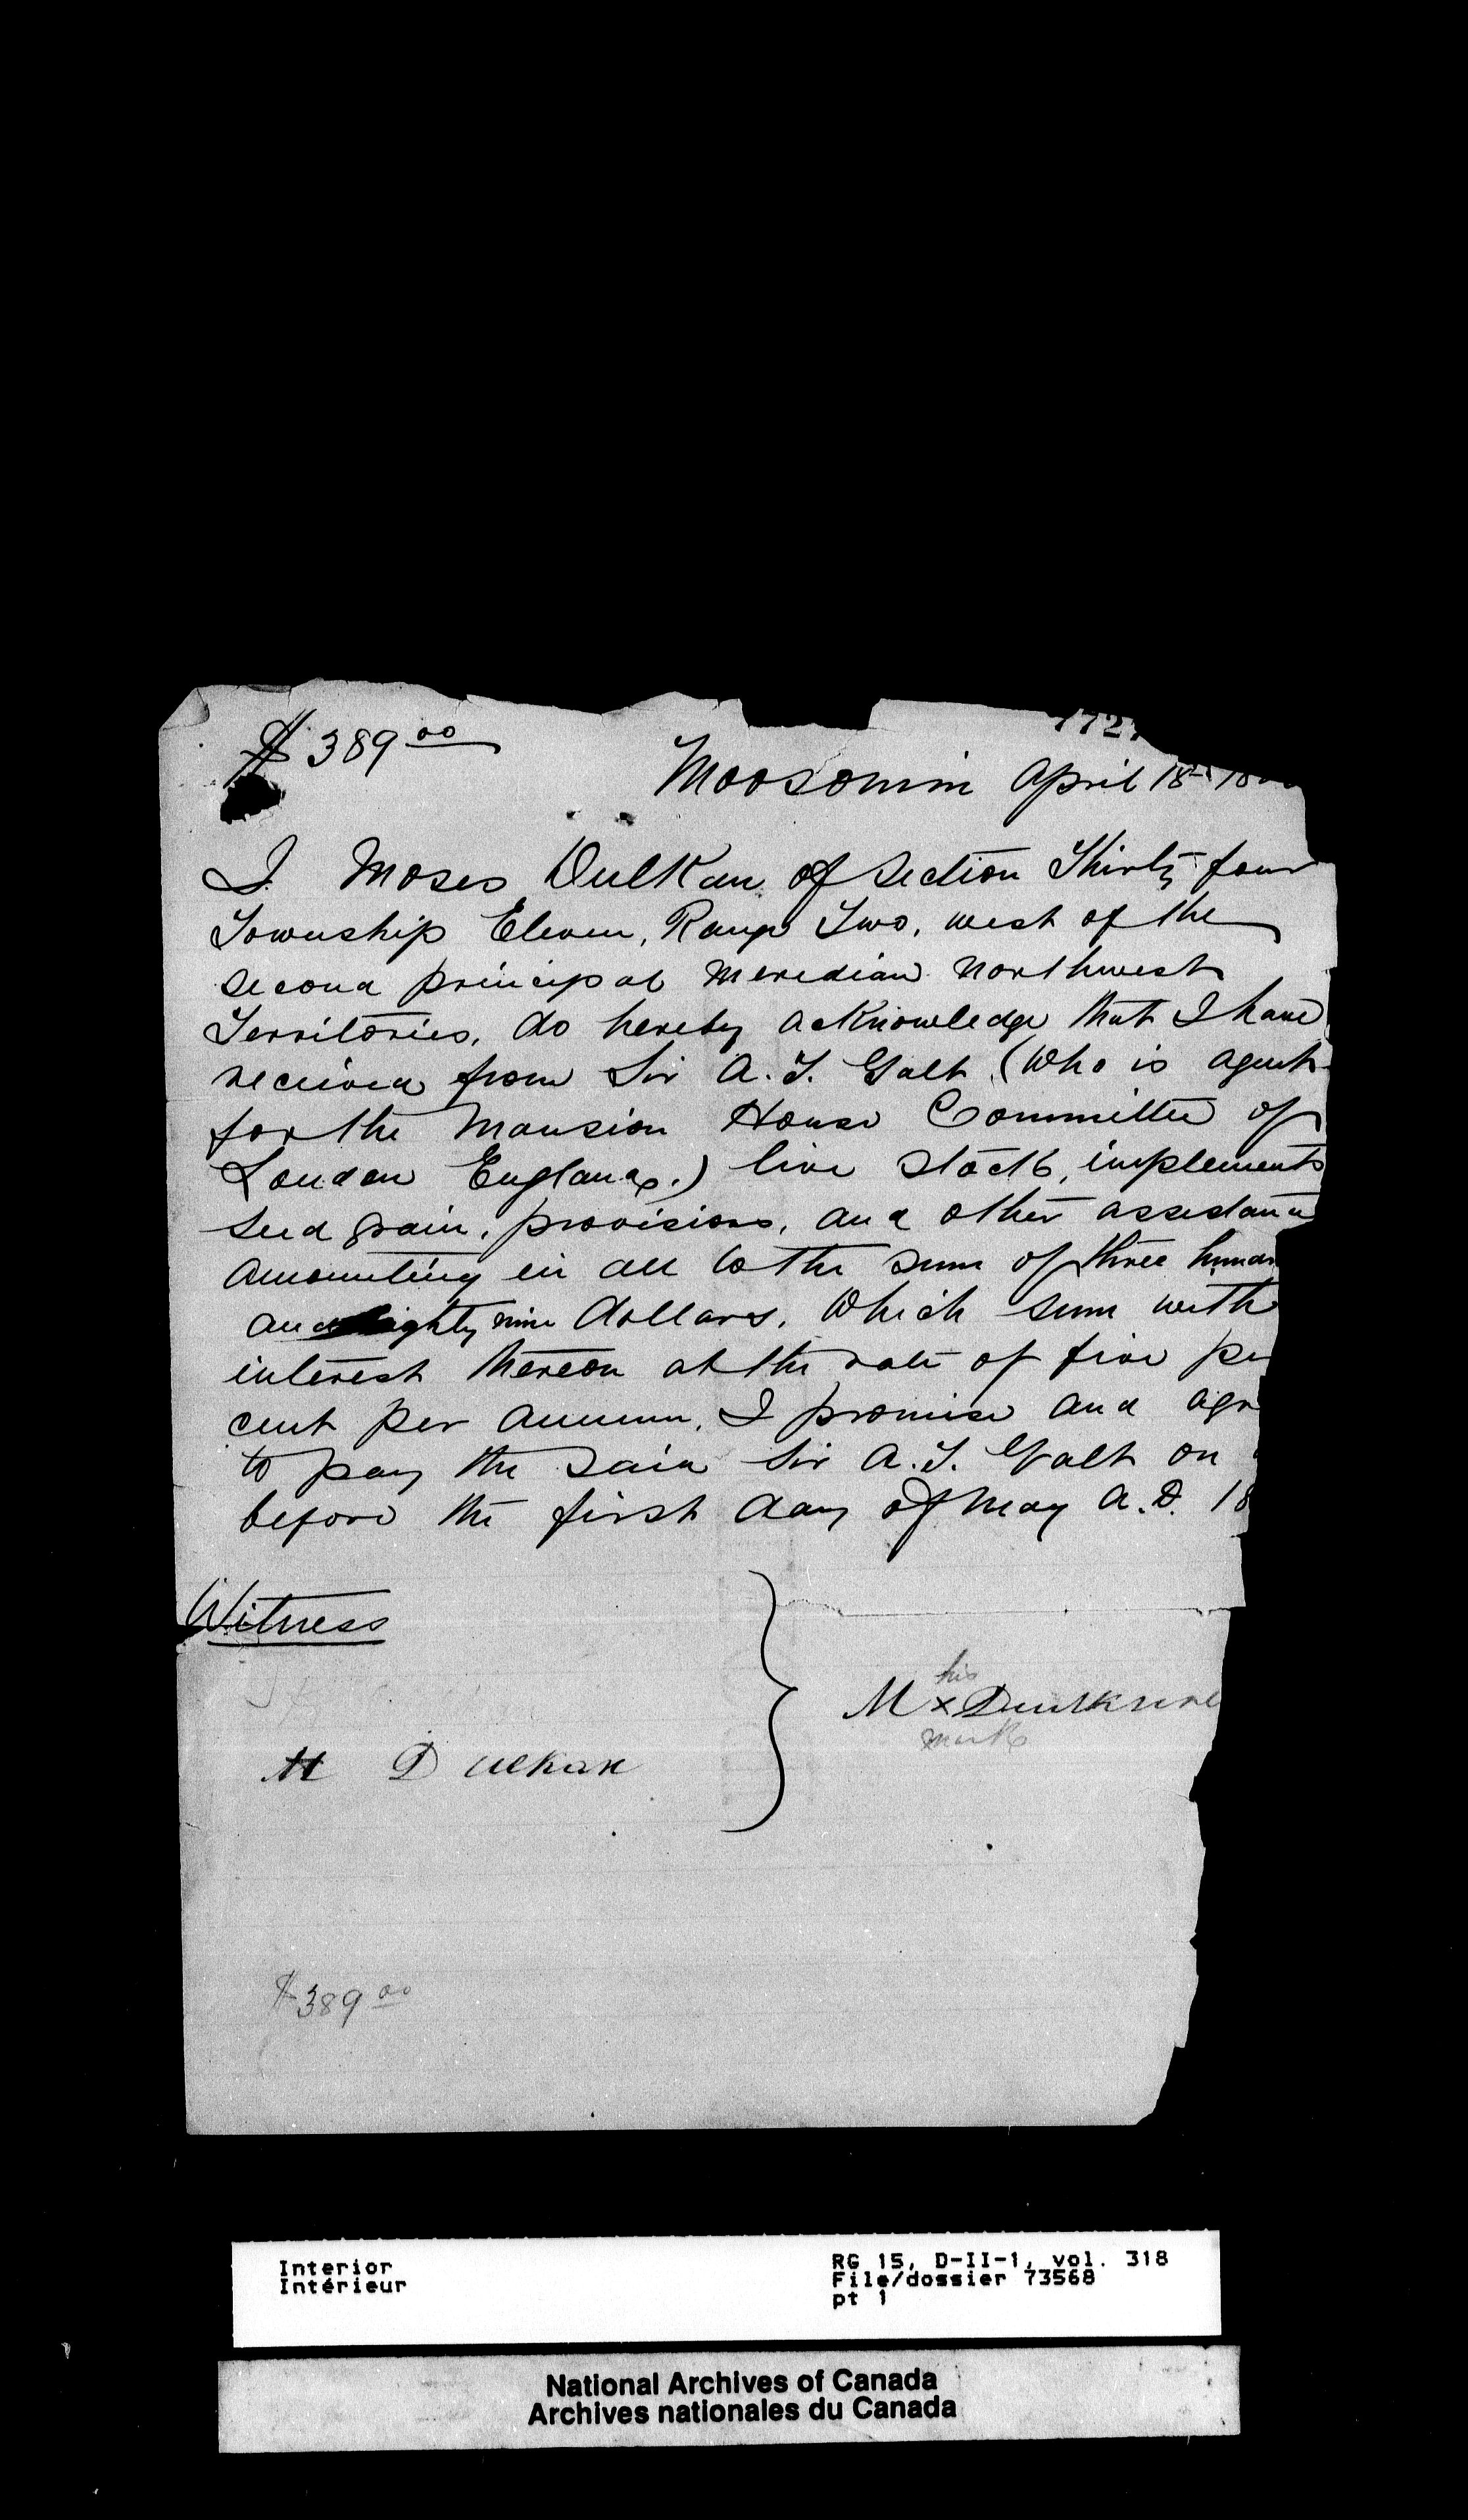 $389 00
772
Moosomin April 18th 18
I. Moses Dulkan of Section Thirty four
Township Eleven, Range Two, west of the
second principal meridian northwest
Territories, do hereby acknowledge that I have
received from Sir A. T. Galt (Who is agent
for the Mansion House Committee of
London England.) live stock, implements
seed grain, provisions, and other assistance
amounting in all to the sum of three hundr
and eighty nine dollars. Which sum with
interest thereon at the rate of five per
cent per annum, I promise and agr
to pay the said Sir A. T. Galt on
before the first day of May A.D. 18
Witness
his
M x
mark
M Dulkan
$389 00
Interior
Intérieur
RG 15, D-II-1, vol. 318
File/dossier 73568
pt 1
National Archives of Canada
Archives nationales du Canada